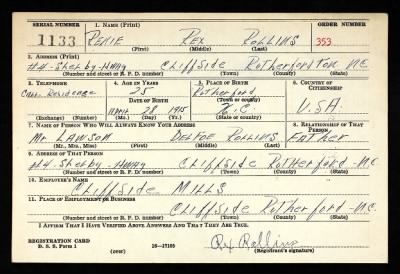 SERIAL NUMBER 1. NAME (Print) ORDER NUMBER
1133 Rex Rollins 353
(First) (Middle) (Last)
2. ADDRESS (Print)
Shelby-Hway Cliffside Rutherfordton N.C.
(Number and street or R. F. D. number) (Town) (County) (State)
3. TELEPHONE 4. AGE IN YEARS 5. PLACE OF BIRTH 6. COUNTRY OF CITIZENSHIP
Residence 25 Rutherford
DATE OF BIRTH (Town or county)
March 28 1915 N.C. U.S.A.
(Exchange) (Number) (Mo.) (Day) (Yr.) (State or country)
7. NAME OF PERSON WHO WILL ALWAYS KNOW YOUR ADDRESS 8. RELATIONSHIP OF THAT PERSON
Mr Lawson Rollins Father
(Mr., Mrs., Miss) (First) (Middle) (Last)
9. ADDRESS OF THAT PERSON
Shelby-Hway Cliffside Rutherford N.C.
(Number and street or R. F. D. number) (Town) (County) (State)
10. EMPLOYER'S NAME
Cliffside Mills
11. PLACE OF EMPLOYMENT OR BUSINESS
Cliffside Rutherford N.C.
(Number and street or R. F. D. number) (Town) (County) (State)
I AFFIRM THAT I HAVE VERIFIED ABOVE ANSWERS AND THAT THEY ARE TRUE.
REGISTRATION CARD
D. S. S. Form 1 (over) 16-17105 Rex Rollins
(Registrant's signature)